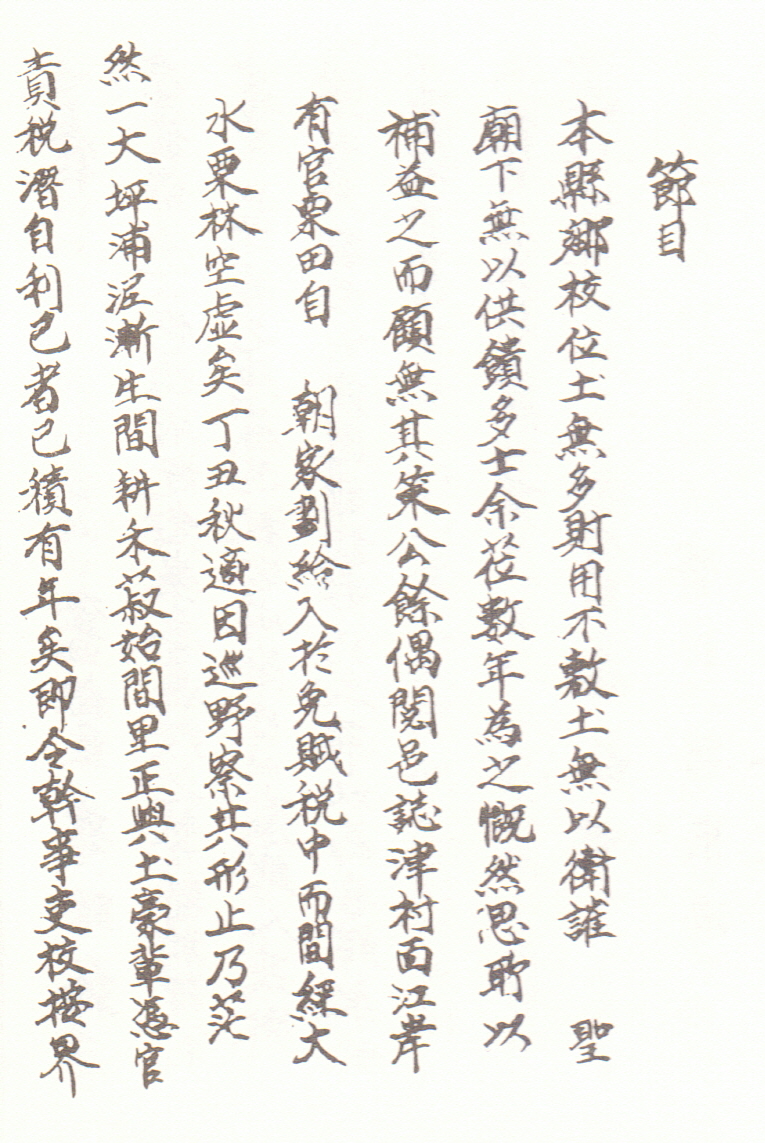 節目
本縣鄕校位土無多財用不敷土無以衛護　聖
廟下無以供饋多士余莅數年為之慨然思所以
補益之而顧無其策公餘偶閱邑誌津村面江岸
有官栗田自　朝家劃給入於免賦稅中而間經大
水栗林空虛矣丁丑秋適因巡野察其形止乃茫
然一大坪浦泥漸生間耕禾菽始間里正與土豪輩憑官
責稅潛自利己者已積有年矣卽令幹事吏校按界